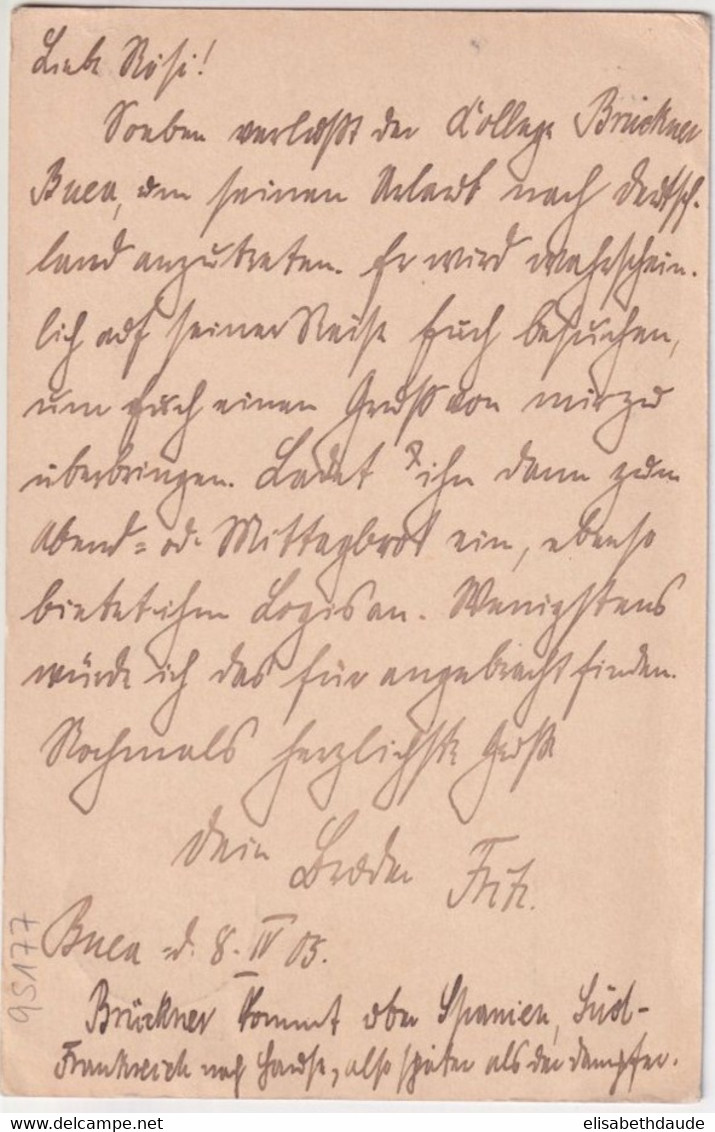 Liebe Rösi!
Soeben verläßt der College Brückner
Buea, um seinen Urlaub nach Deutsch-
land anzutreten. Er wird wahrschein-
lich auf seiner Reise Euch besuchen,
um Euch einen Gruß von mir zu
überbringen. Ladet ihn dann zum
Abend= od. Mittagbrot ein, ebenso
bietet ihm Logis an. Wenigstens
würde ich das für angebracht finden.
Nochmals herzlichste Grüße
Dein Bruder Fritz.
Buea d. 8. IV 03.
Brückner kommt über Spanien, Süd-
Frankreich nach Hause, also später als der Dampfer.
95177
elisabethdaude